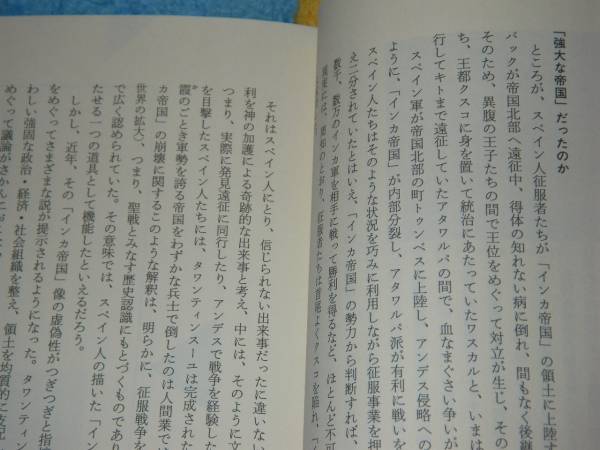 「強大な帝国」だったのか
ところが、スペイン人征服者たちが「インカ帝国」の領土に上陸す
パックが帝国北部へ遠征中、得体の知れない病に倒れ、間もなく後継
そのため、異腹の王子たちの間で王位をめぐって対立が生じ、その
ち、王都クスコに身を置いて統治にあたっていたワスカルと、いまは
行してキトまで遠征していたアタワルパの間で、血なまぐさい争いが
スペイン軍が帝国北部の町トゥンベスに上陸し、アンデス侵略への
ように、「インカ帝国」が内部分裂し、アタワルパ派が有利に戦いを
スペイン人たちはそのような状況を巧みに利用しながら征服事業を押
え二分されていたとはいえ、「インカ帝国」の勢力から判断すれば、
数千、数万のインカ軍を相手に戦って勝利を得るなど、ほとんど不可
たちは首尾よくクスコを陥れ、「イ
それはスペイン人にとり、信じられない出来事だったに違いない
利を神の加護による奇跡的な出来事と考え、中には、そのように文
つまり、実際に発見遠征に同行したり、アンデスで戦争を経験した
を目撃したスペイン人たちには、タワンティンスーユは完成された
霞のごとき軍勢を誇る帝国をわずかな兵士で倒したのは人間業では
カ帝国」の崩壊に関するこのような解釈は、明らかに、征服戦争を
世界の拡大）、つまり、聖戦とみなす歴史認識にもとづくものであり
で広く認められていた。その意味では、スペイン人の描いた「イン
たせる一つの道具として機能したといえるだろう。
しかし、近年、その「インカ帝国」像の虚偽性がつぎつぎと指摘
をめぐってさまざまな説が提示されるようになった。タワンティン
わしい強固な政治・経済・社会組織を整え、領土を均質的に支配
めぐって議論がさかんに